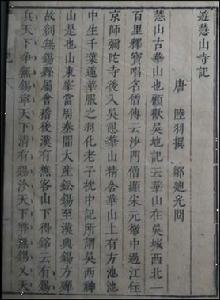 遊慧山寺記
唐 陸羽撰 鄒迪光閱
慧山古華山也顧歡吳地記云華山在吳城西北一
百里釋寶唱名僧傳云沙門僧顯宋元徽中過江住
京師彌陀寺後入吳憩華山精舍華山上有方池池
中生千葉蓮華服之羽化老子枕中記所謂吳西神
山是也山東峯當周秦間大產鉛錫至漢興錫方殫
故創無錫縣屬會稽後漢有樵客山下得銘云有錫
兵天下爭無錫寧天下清有錫沴天下弊無錫乂天